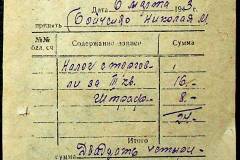 6 марта 1943 г.
Дата
принять Бойченко Николая М
№№ Содержание записи Сумма
бал. сч
Налог с торгов-
ли за II кв. 16 -
Штраф 8 -
24 -
Итого
сумма Двадцать четыре